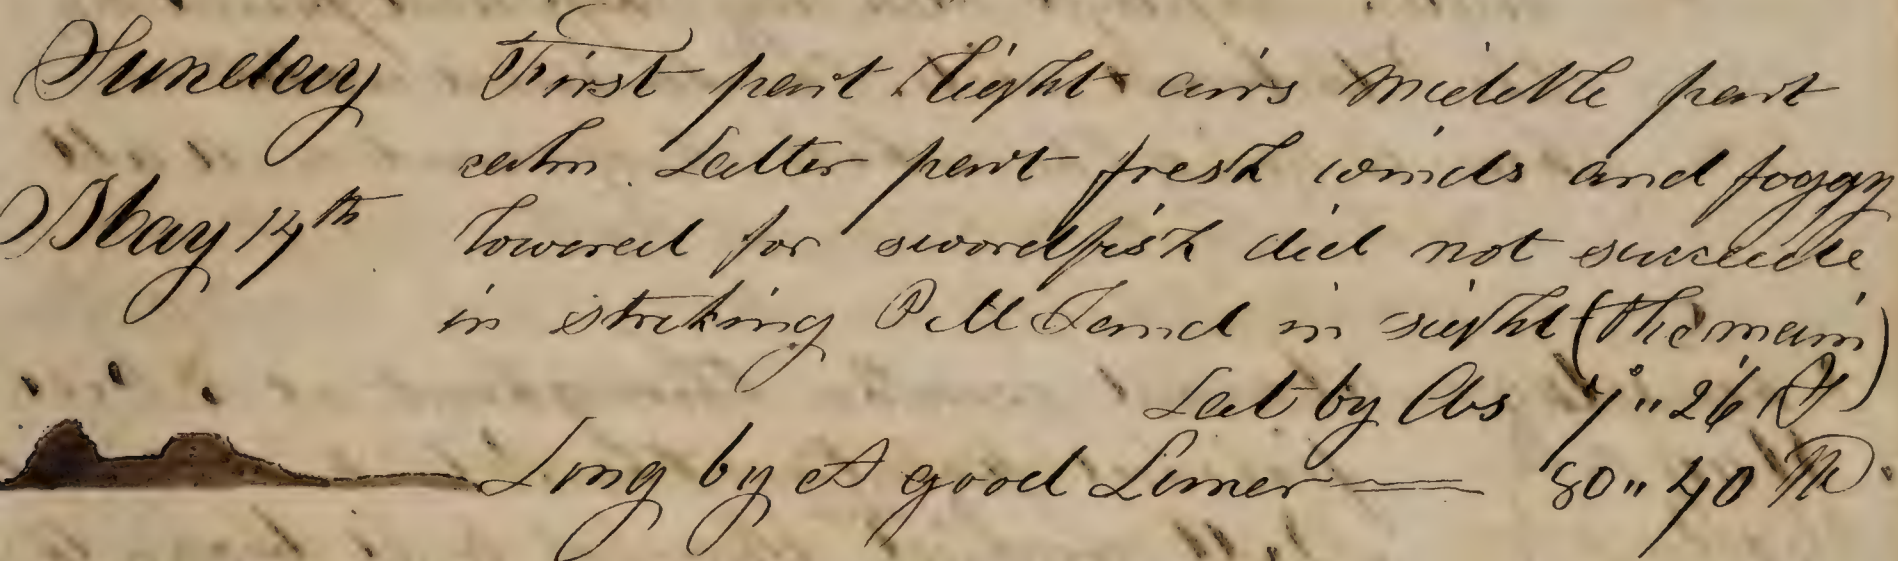 Sunday First part light airs middle part
calm. Latter part fresh winds and foggy
May 14th lowered for swordfish did not succede
in striking P.M Land in sight (the main)
Lat by Obs 7°"26 S
Long by A good Lunar — 80"40 W